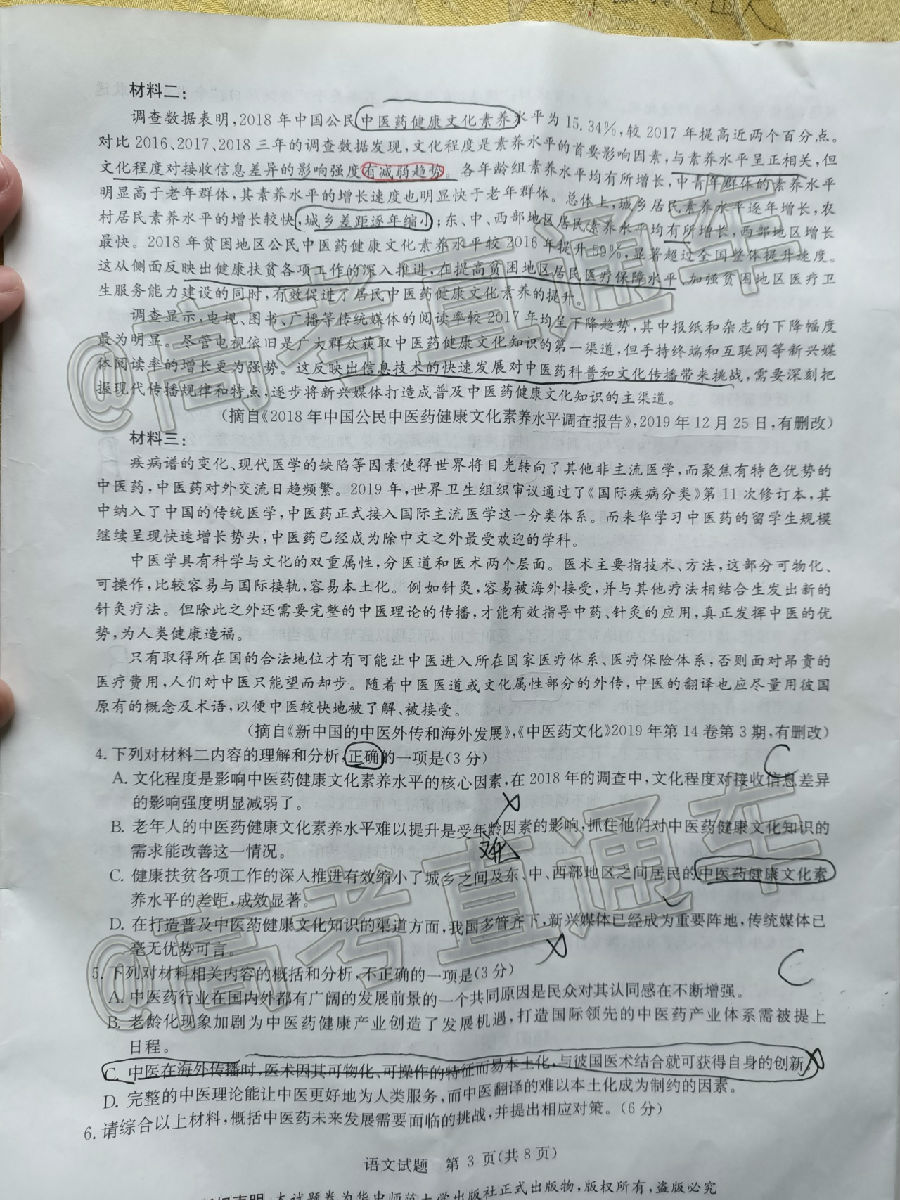 材料二:
调查数据表明,2018年中国公民中医药健康文化素养水平为15.34%,较2017年提高近两个百分点。
对比2016、2017、2018三年的调查数据发现,文化程度是素养水平的首要影响因素,与素养水平呈正相关,但
文化程度对接收信息差异的影响强度有减弱趋势。各年龄组素养水平均有所增长,中青年群体的素养水平
明显高于老年群体,其素养水平的增长速度也明显快于老年群体。总体上,城乡居民素养水平逐年增长,农
村居民素养水平的增长较快,城乡差距逐年缩小;东、中、西部地区居民素养水平均有所增长,西部地区增长
最快。2018年贫困地区公民中医药健康文化素养水平较2016年提升59%,显著超过全国整体提升速度。
这从侧面反映出健康扶贫各项工作的深入推进,在提高贫困地区居民医疗保障水平、加强贫困地区医疗卫
生服务能力建设的同时,有效促进了居民中医药健康文化素养的提升。
调查显示,电视、图书、广播等传统媒体的阅读率较2017年均呈下降趋势,其中报纸和杂志的下降幅度
最为明显。尽管电视依旧是广大群众获取中医药健康文化知识的第一渠道,但手持终端和互联网等新兴媒
体阅读率的增长更为强势。这反映出信息技术的快速发展对中医药科普和文化传播带来挑战,需要深刻把
握现代传播规律和特点,逐步将新兴媒体打造成普及中医药健康文化知识的主渠道。
(摘自《2018年中国公民中医药健康文化素养水平调查报告》,2019年12月25日,有删改)
材料三:
疾病谱的变化、现代医学的缺陷等因素使得世界将目光转向了其他非主流医学,而聚焦有特色优势的
中医药,中医药对外交流日趋频繁。2019年,世界卫生组织审议通过了《国际疾病分类》第11次修订本,其
中纳入了中国的传统医学,中医药正式接入国际主流医学这一分类体系。而来华学习中医药的留学生规模
继续呈现快速增长势头,中医药已经成为除中文之外最受欢迎的学科。
中医学具有科学与文化的双重属性,分医道和医术两个层面。医术主要指技术、方法,这部分可物化、
可操作,比较容易与国际接轨,容易本土化。例如针灸,容易被海外接受,并与其他疗法相结合生发出新的
针灸疗法。但除此之外还需要完整的中医理论的传播,才能有效指导中药、针灸的应用,真正发挥中医的优
势,为人类健康造福。
只有取得所在国的合法地位才有可能让中医进入所在国家医疗体系、医疗保险体系,否则面对昂贵的
医疗费用,人们对中医只能望而却步。随着中医医道或文化属性部分的外传,中医的翻译也应尽量用彼国
原有的概念及术语,以便中医较快地被了解、被接受。
(摘自《新中国的中医外传和海外发展》,《中医药文化》2019年第14卷第3期,有删改)
4. 下列对材料二内容的理解和分析,正确的一项是(3分) C
A. 文化程度是影响中医药健康文化素养水平的核心因素,在2018年的调查中,文化程度对接收信息差异
的影响强度明显减弱了。
B. 老年人的中医药健康文化素养水平难以提升是受年龄因素的影响,抓住他们对中医药健康文化知识的
需求能改善这一情况。
C. 健康扶贫各项工作的深入推进有效缩小了城乡之间及东、中、西部地区之间居民的中医药健康文化素
养水平的差距,成效显著。
D. 在打造普及中医药健康文化知识的渠道方面,我国多管齐下,新兴媒体已经成为重要阵地,传统媒体已
毫无优势可言。
5. 下列对材料相关内容的概括和分析,不正确的一项是(3分) C
A. 中医药行业在国内外都有广阔的发展前景的一个共同原因是民众对其认同感在不断增强。
B. 老龄化现象加剧为中医药健康产业创造了发展机遇,打造国际领先的中医药产业体系需被提上
日程。
C. 中医在海外传播时,医术因其可物化、可操作的特征而易本土化,与彼国医术结合就可获得自身的创新。
D. 完整的中医理论能让中医更好地为人类服务,而中医翻译的难以本土化成为制约的因素。
6. 请综合以上材料,概括中医药未来发展需要面临的挑战,并提出相应对策。(6分)
语文试题 第3页(共8页)
本试题卷为华中师范大学出版社正式出版物,版权所有,盗版必究
@高考直通车
@高考直通车